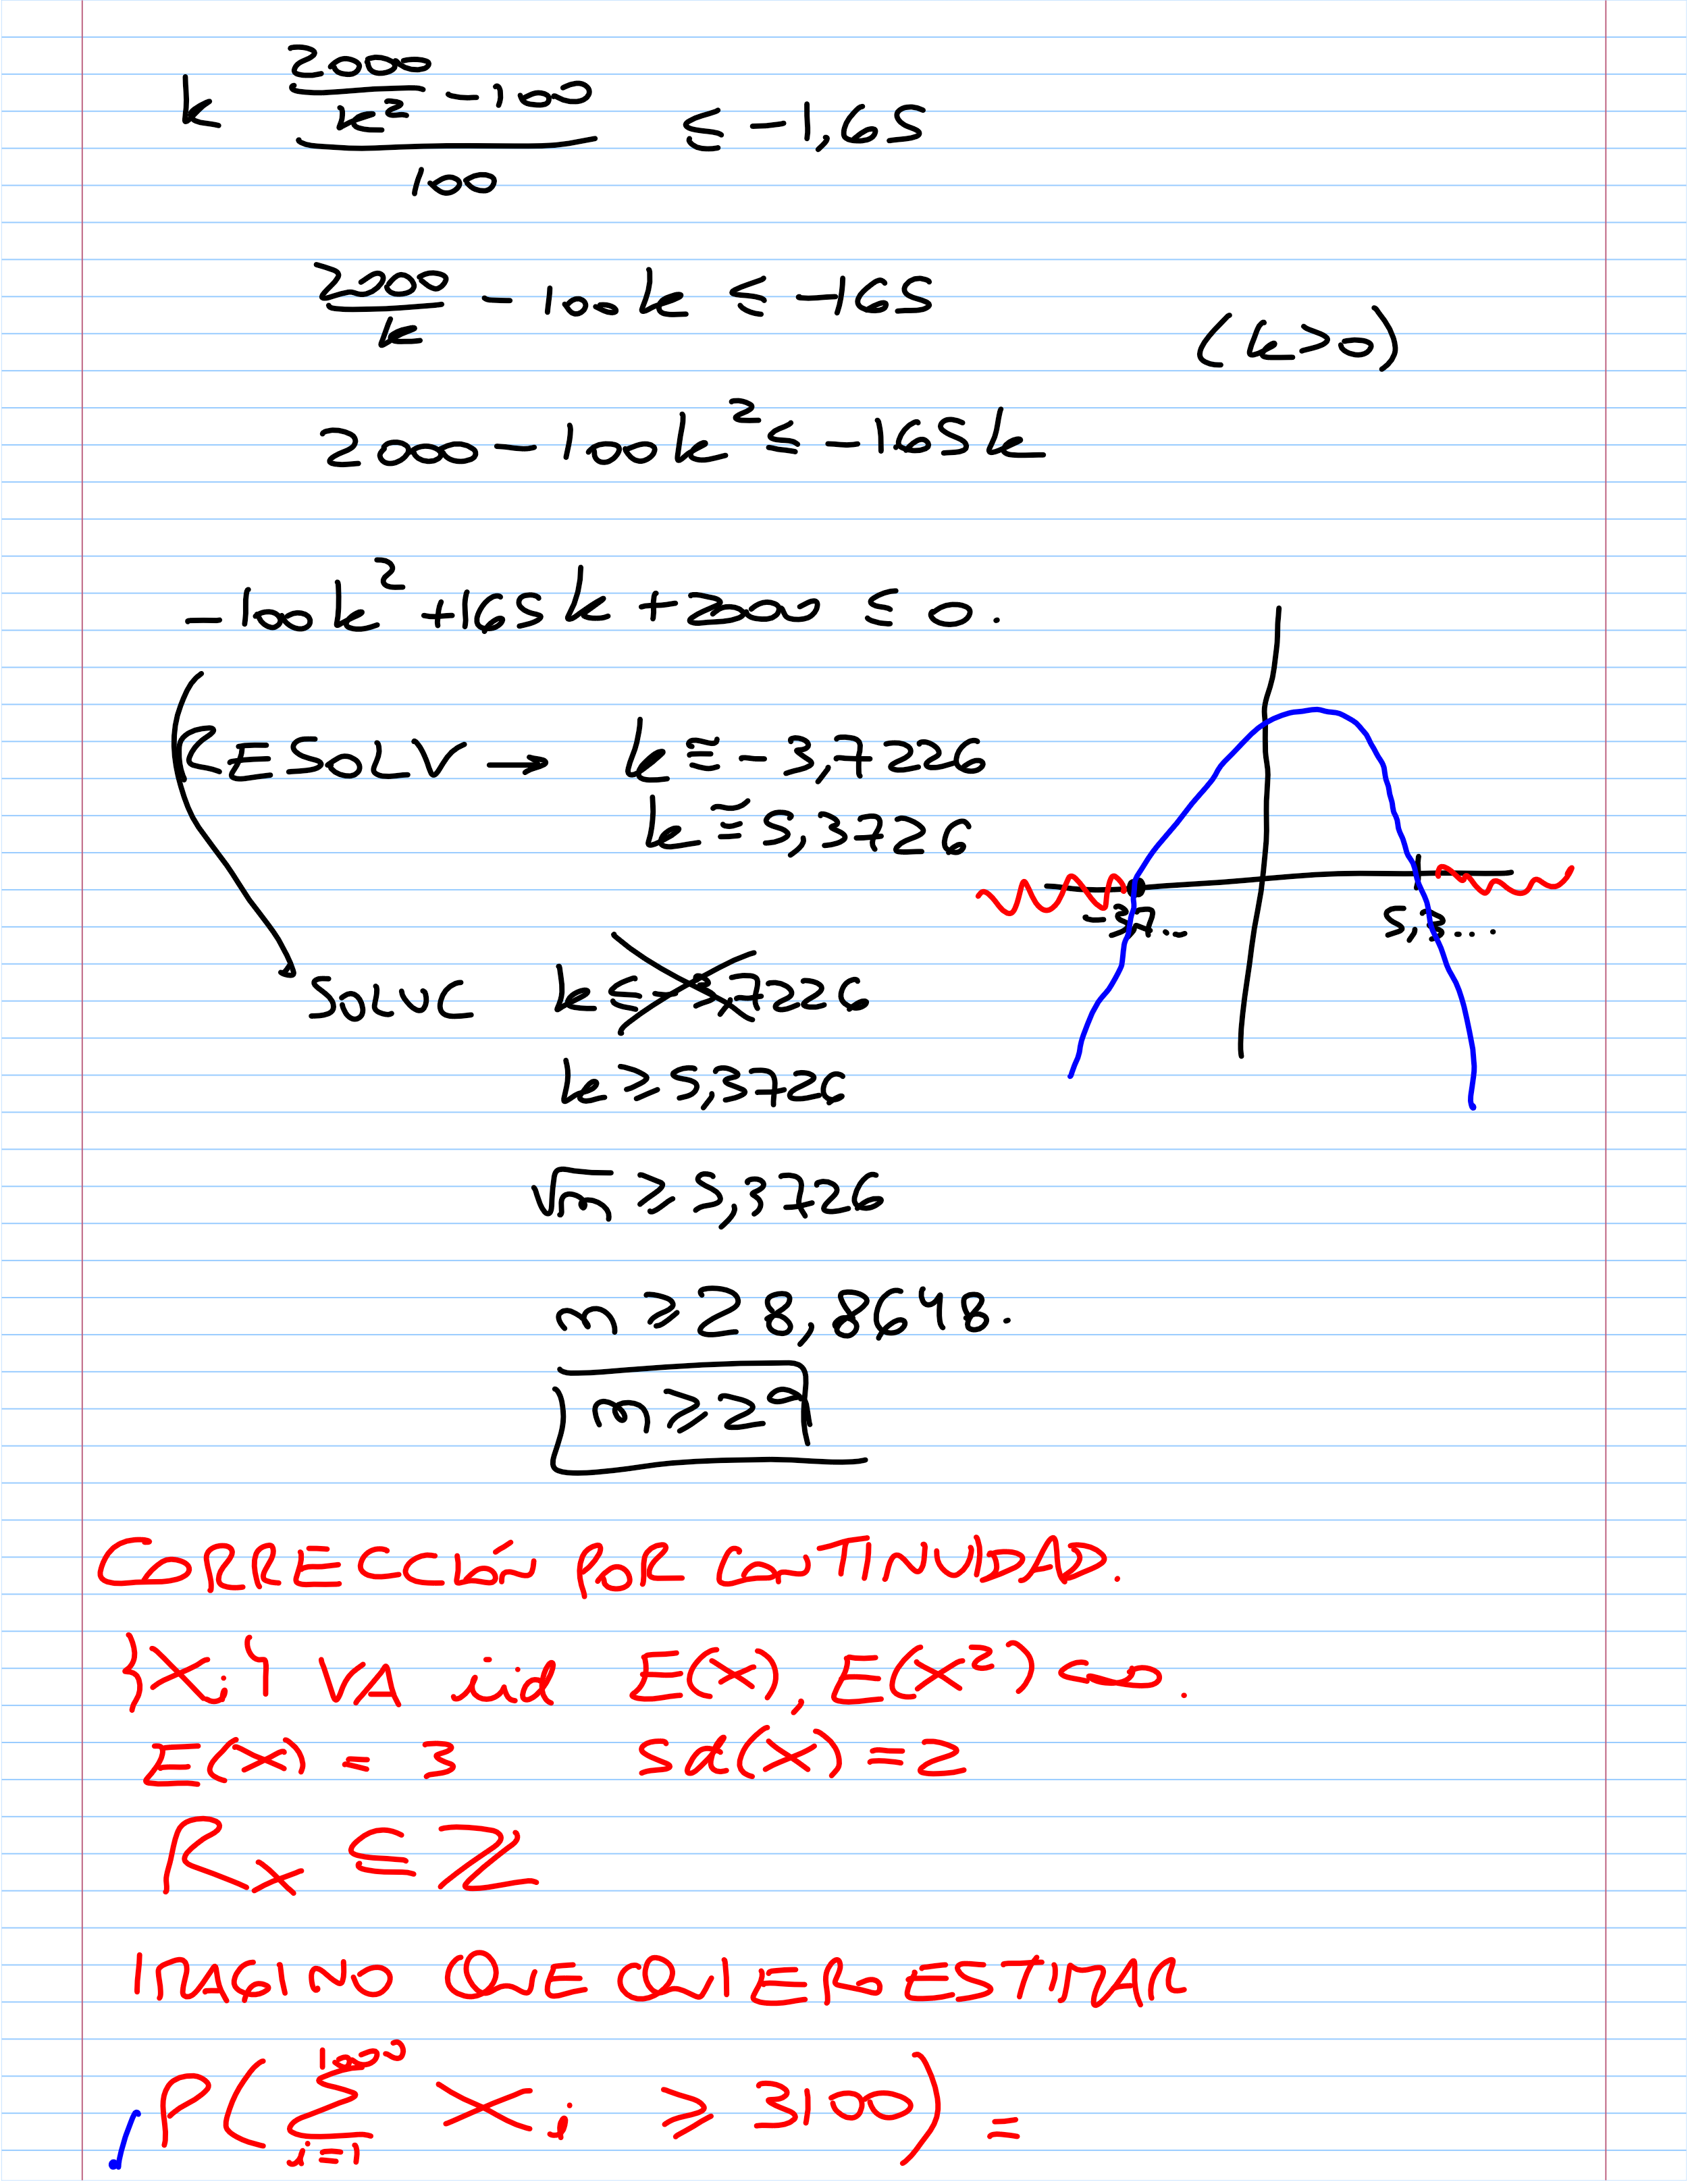 k \frac{\frac{2000}{k^2} - 100}{100} ≤ -1,65
\frac{2000}{k} - 100k ≤ -165
(k>0)
2000 - 100k² ≤ -165k
-100k² + 165k + 2000 ≤ 0.
RESOLV → k ≅ -3,7226
k ≅ 5,3726
-3,7... 5,3...
SOLUC k ≤ -3,7226
k ≥ 5,3726
√n ≥ 5,3726
n ≥ 28,8648.
n ≥ 29
CORRECCIÓN POR CONTINUIDAD.
{Xi} VA iid E(X), E(X²) < ∞.
E(X) = 3 sd(X) = 2
R_X ⊆ ℤ
IMAGINO QUE QUIERO ESTIMAR
P(∑_{i=1}^{1000} X_i ≥ 3100) =